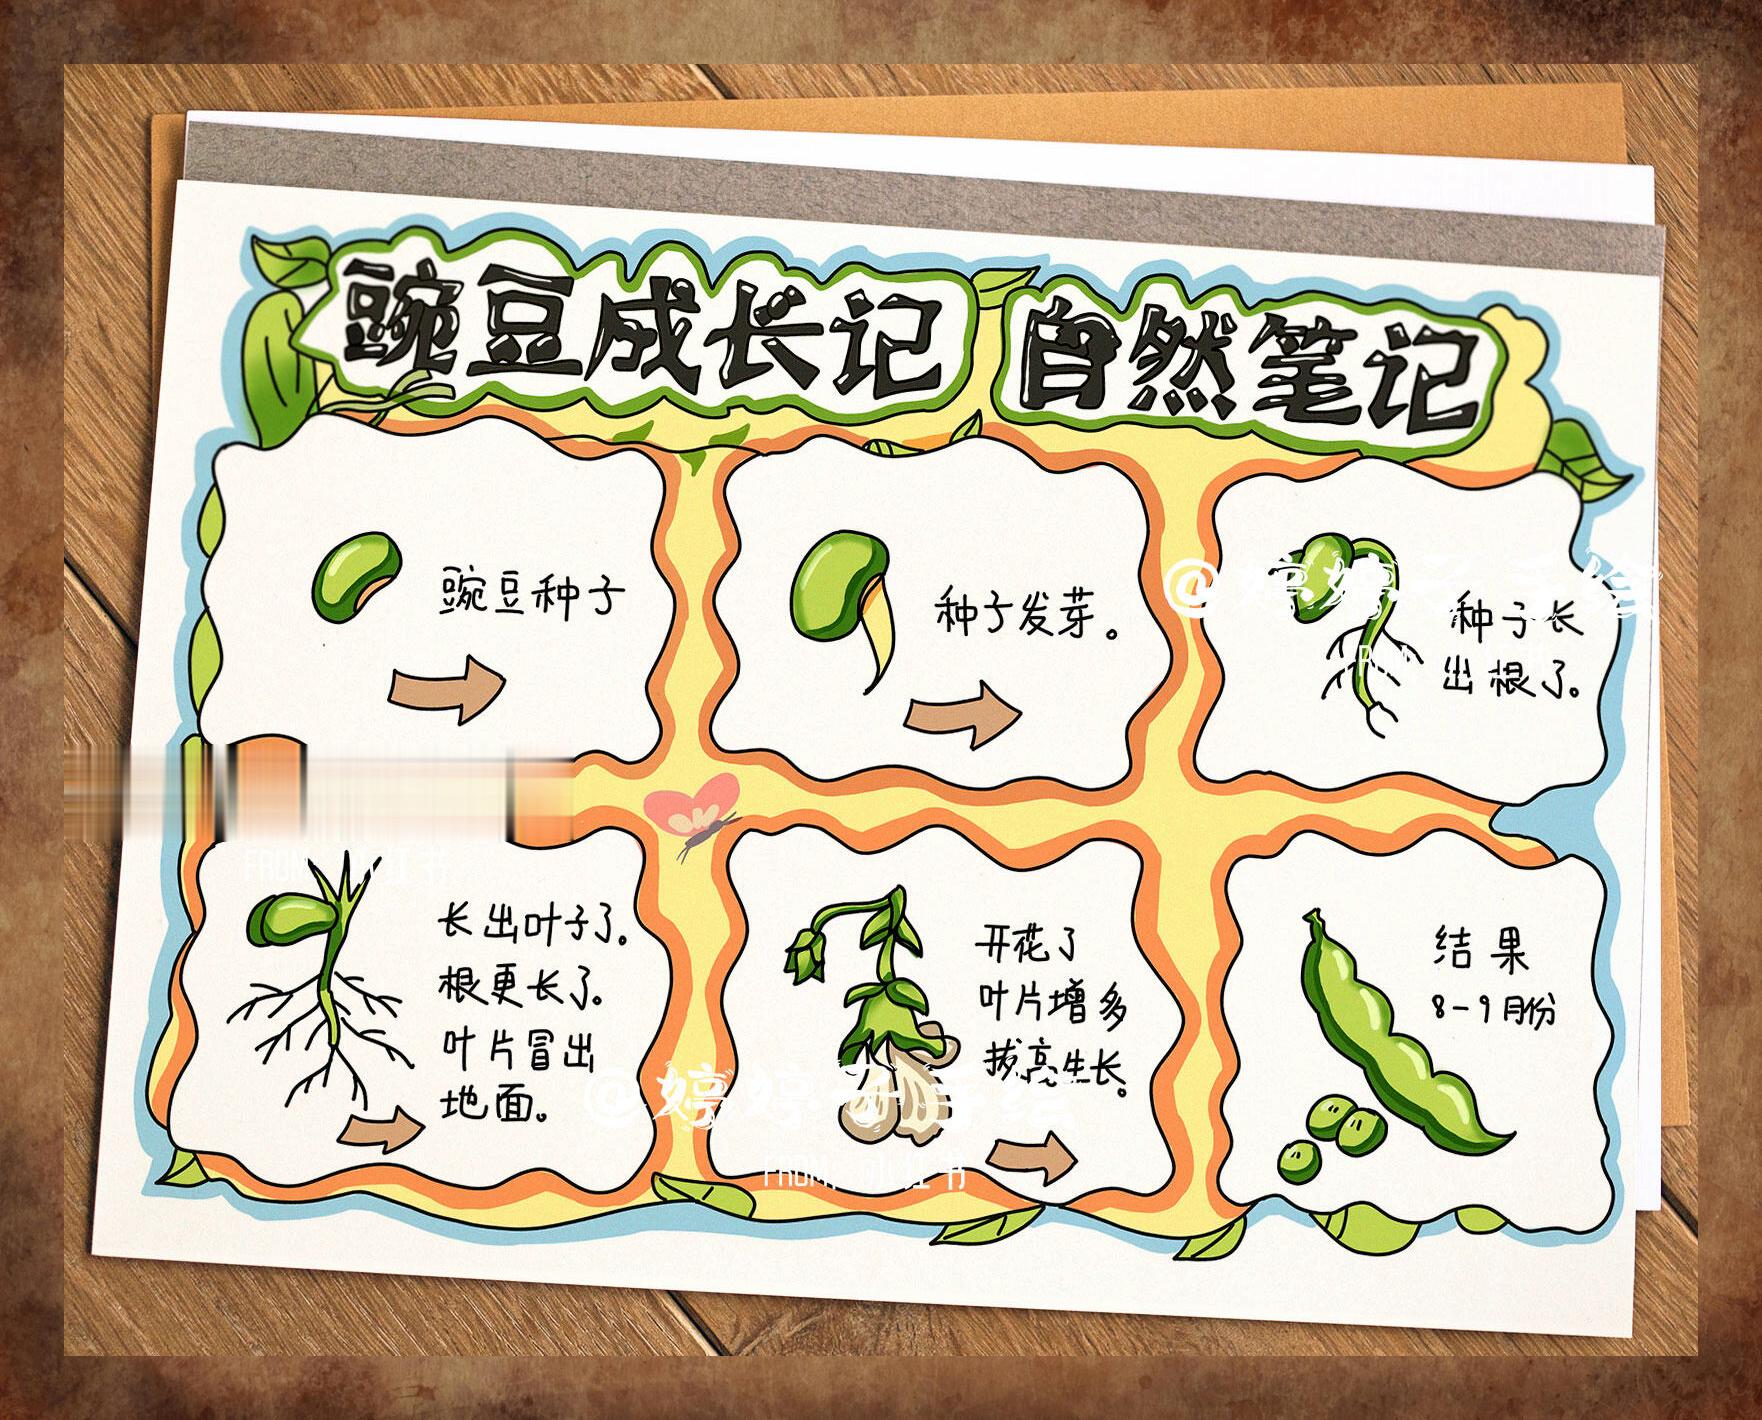 豌豆成长记 自然笔记
豌豆种子
种子发芽。
@婷婷子手绘
种子长
出根了。
FROM: 小红书
长出叶子了。
根更长了。
叶片冒出
地面。
开花了
叶片增多
拔高生长。
@婷婷子手绘
FROM: 小红书
结果
8-9月份